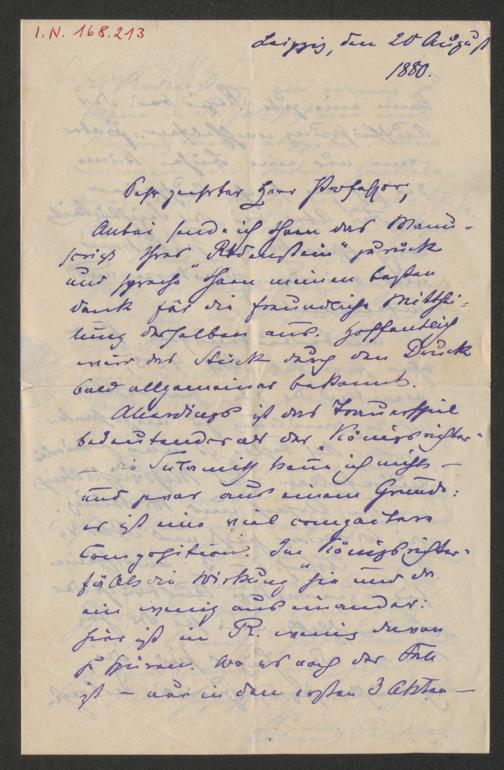 I.N. 168.213
Leipzig, den 20 August
1880.
Sehr geehrter Herr Professor,
Anbei sende ich Ihnen das Manu-
script Ihres "Rodenstein" zurück
und spreche Ihnen meinen besten
Dank für die freundliche Mitthei-
lung desselben aus. Hoffentlich
wird das Stück durch den Druck
bald allgemeiner bekannt.
Allerdings ist das Trauerspiel
bedeutender als der "Königsrichter"
— die kenne ich nicht —
und zwar aus einem Grunde:
es ist eine viel compactere
Composition. Im "Königsrichter"
fällt die Wirkung hie und da
ein wenig auseinander:
hier ist in R. wenig davon
zu spüren. Wo es noch der Fall
ist — nur in den ersten 3 Akten —